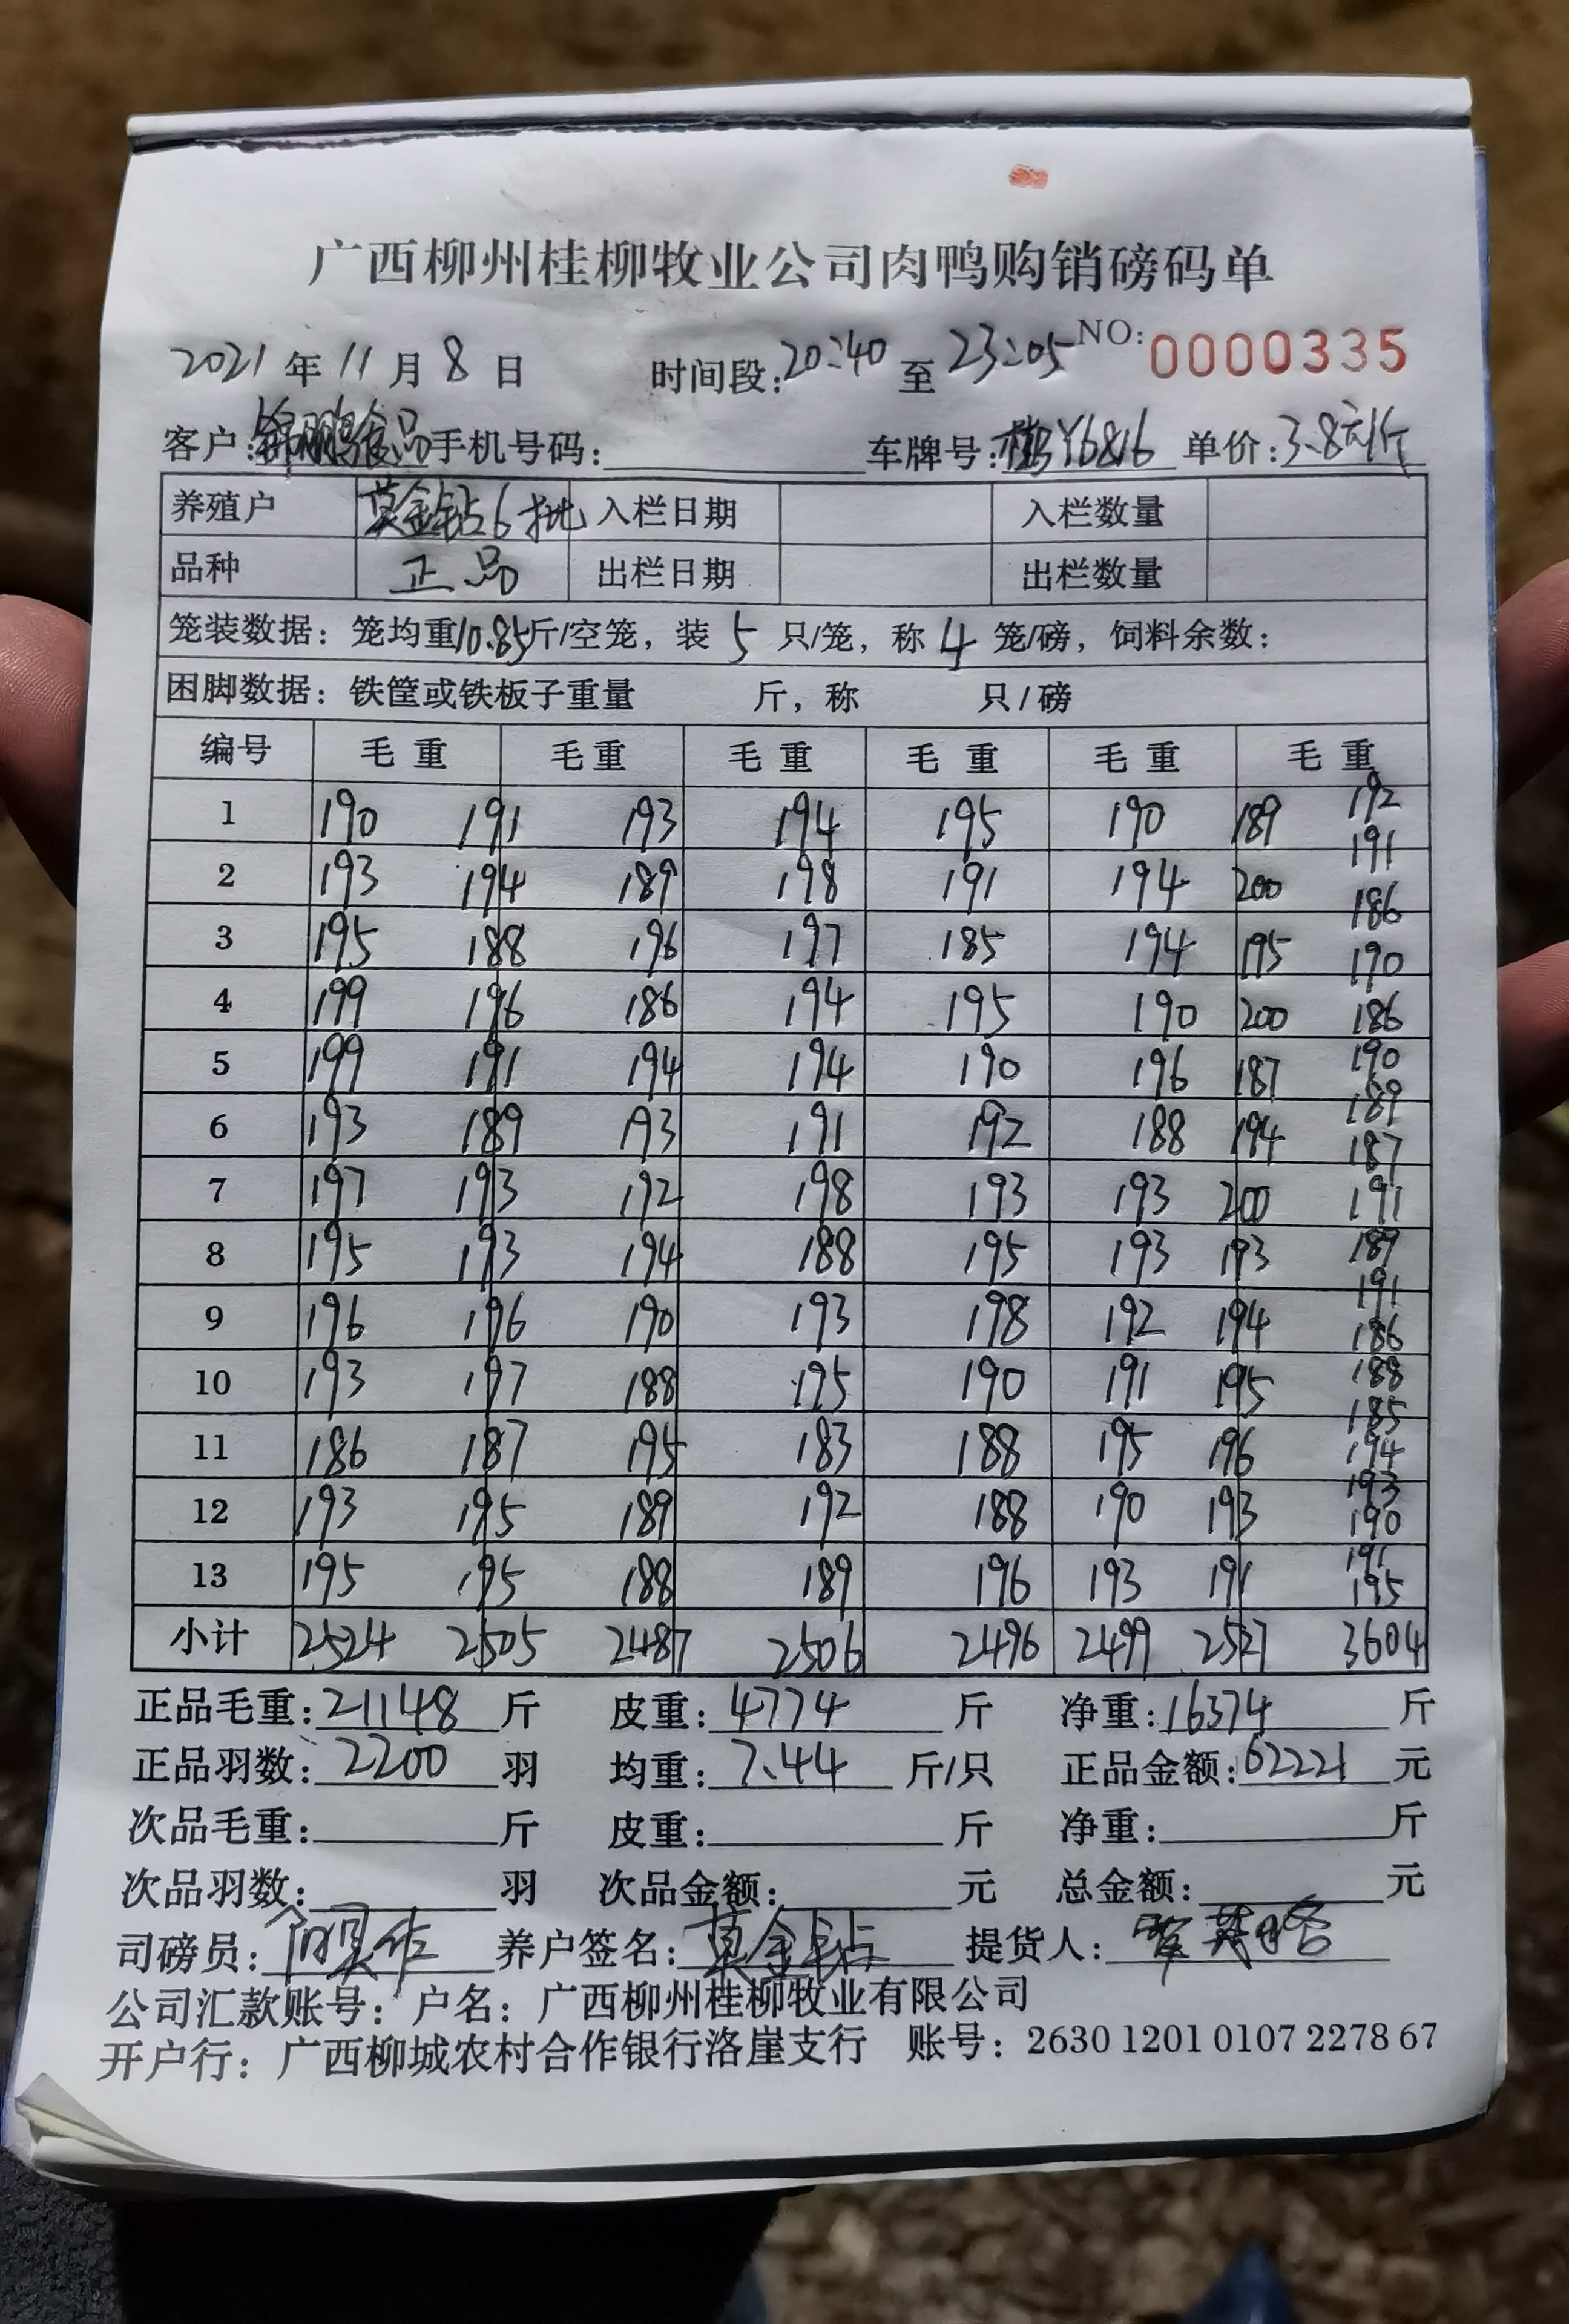 广西柳州桂柳牧业公司肉鸭购销磅码单
2021年11月8日 时间段:20:40至23:05 NO:0000335
客户:锦鹏食品 手机号码: 车牌号:Y6816 单价:3.8元/斤
养殖户 莫金钻6批 入栏日期 入栏数量
品种 正品 出栏日期 出栏数量
笼装数据:笼均重10.85斤/空笼,装5只/笼,称4笼/磅,饲料余数:
困脚数据:铁筐或铁板子重量 斤,称 只/磅
编号 毛重 毛重 毛重 毛重 毛重 毛重
1 190 191 193 194 195 190 189 192
191
2 193 194 189 198 191 194 200 186
3 195 188 196 197 185 194 195 190
4 199 196 186 194 195 190 200 186
5 199 191 194 194 190 196 187 190
189
6 193 189 193 191 192 188 194 187
7 197 193 192 198 193 193 200 191
8 195 193 194 188 195 193 193 189
191
9 196 196 190 193 198 192 194 186
10 193 197 188 195 190 191 195 188
185
11 186 187 195 183 188 195 196 194
193
12 193 195 189 192 188 190 193 190
191
13 195 195 188 189 196 193 191 195
小计 2524 2505 2487 2506 2496 2499 2527 3604
正品毛重:21148斤 皮重:4774斤 净重:16374斤
正品羽数:2200羽 均重:7.44斤/只 正品金额:62221元
次品毛重:斤 皮重:斤 净重:斤
次品羽数:羽 次品金额:元 总金额:元
司磅员: 养户签名:莫金钻 提货人:
公司汇款账号:户名:广西柳州桂柳牧业有限公司
开户行:广西柳城农村合作银行洛崖支行 账号:2630 1201 0107 2278 67